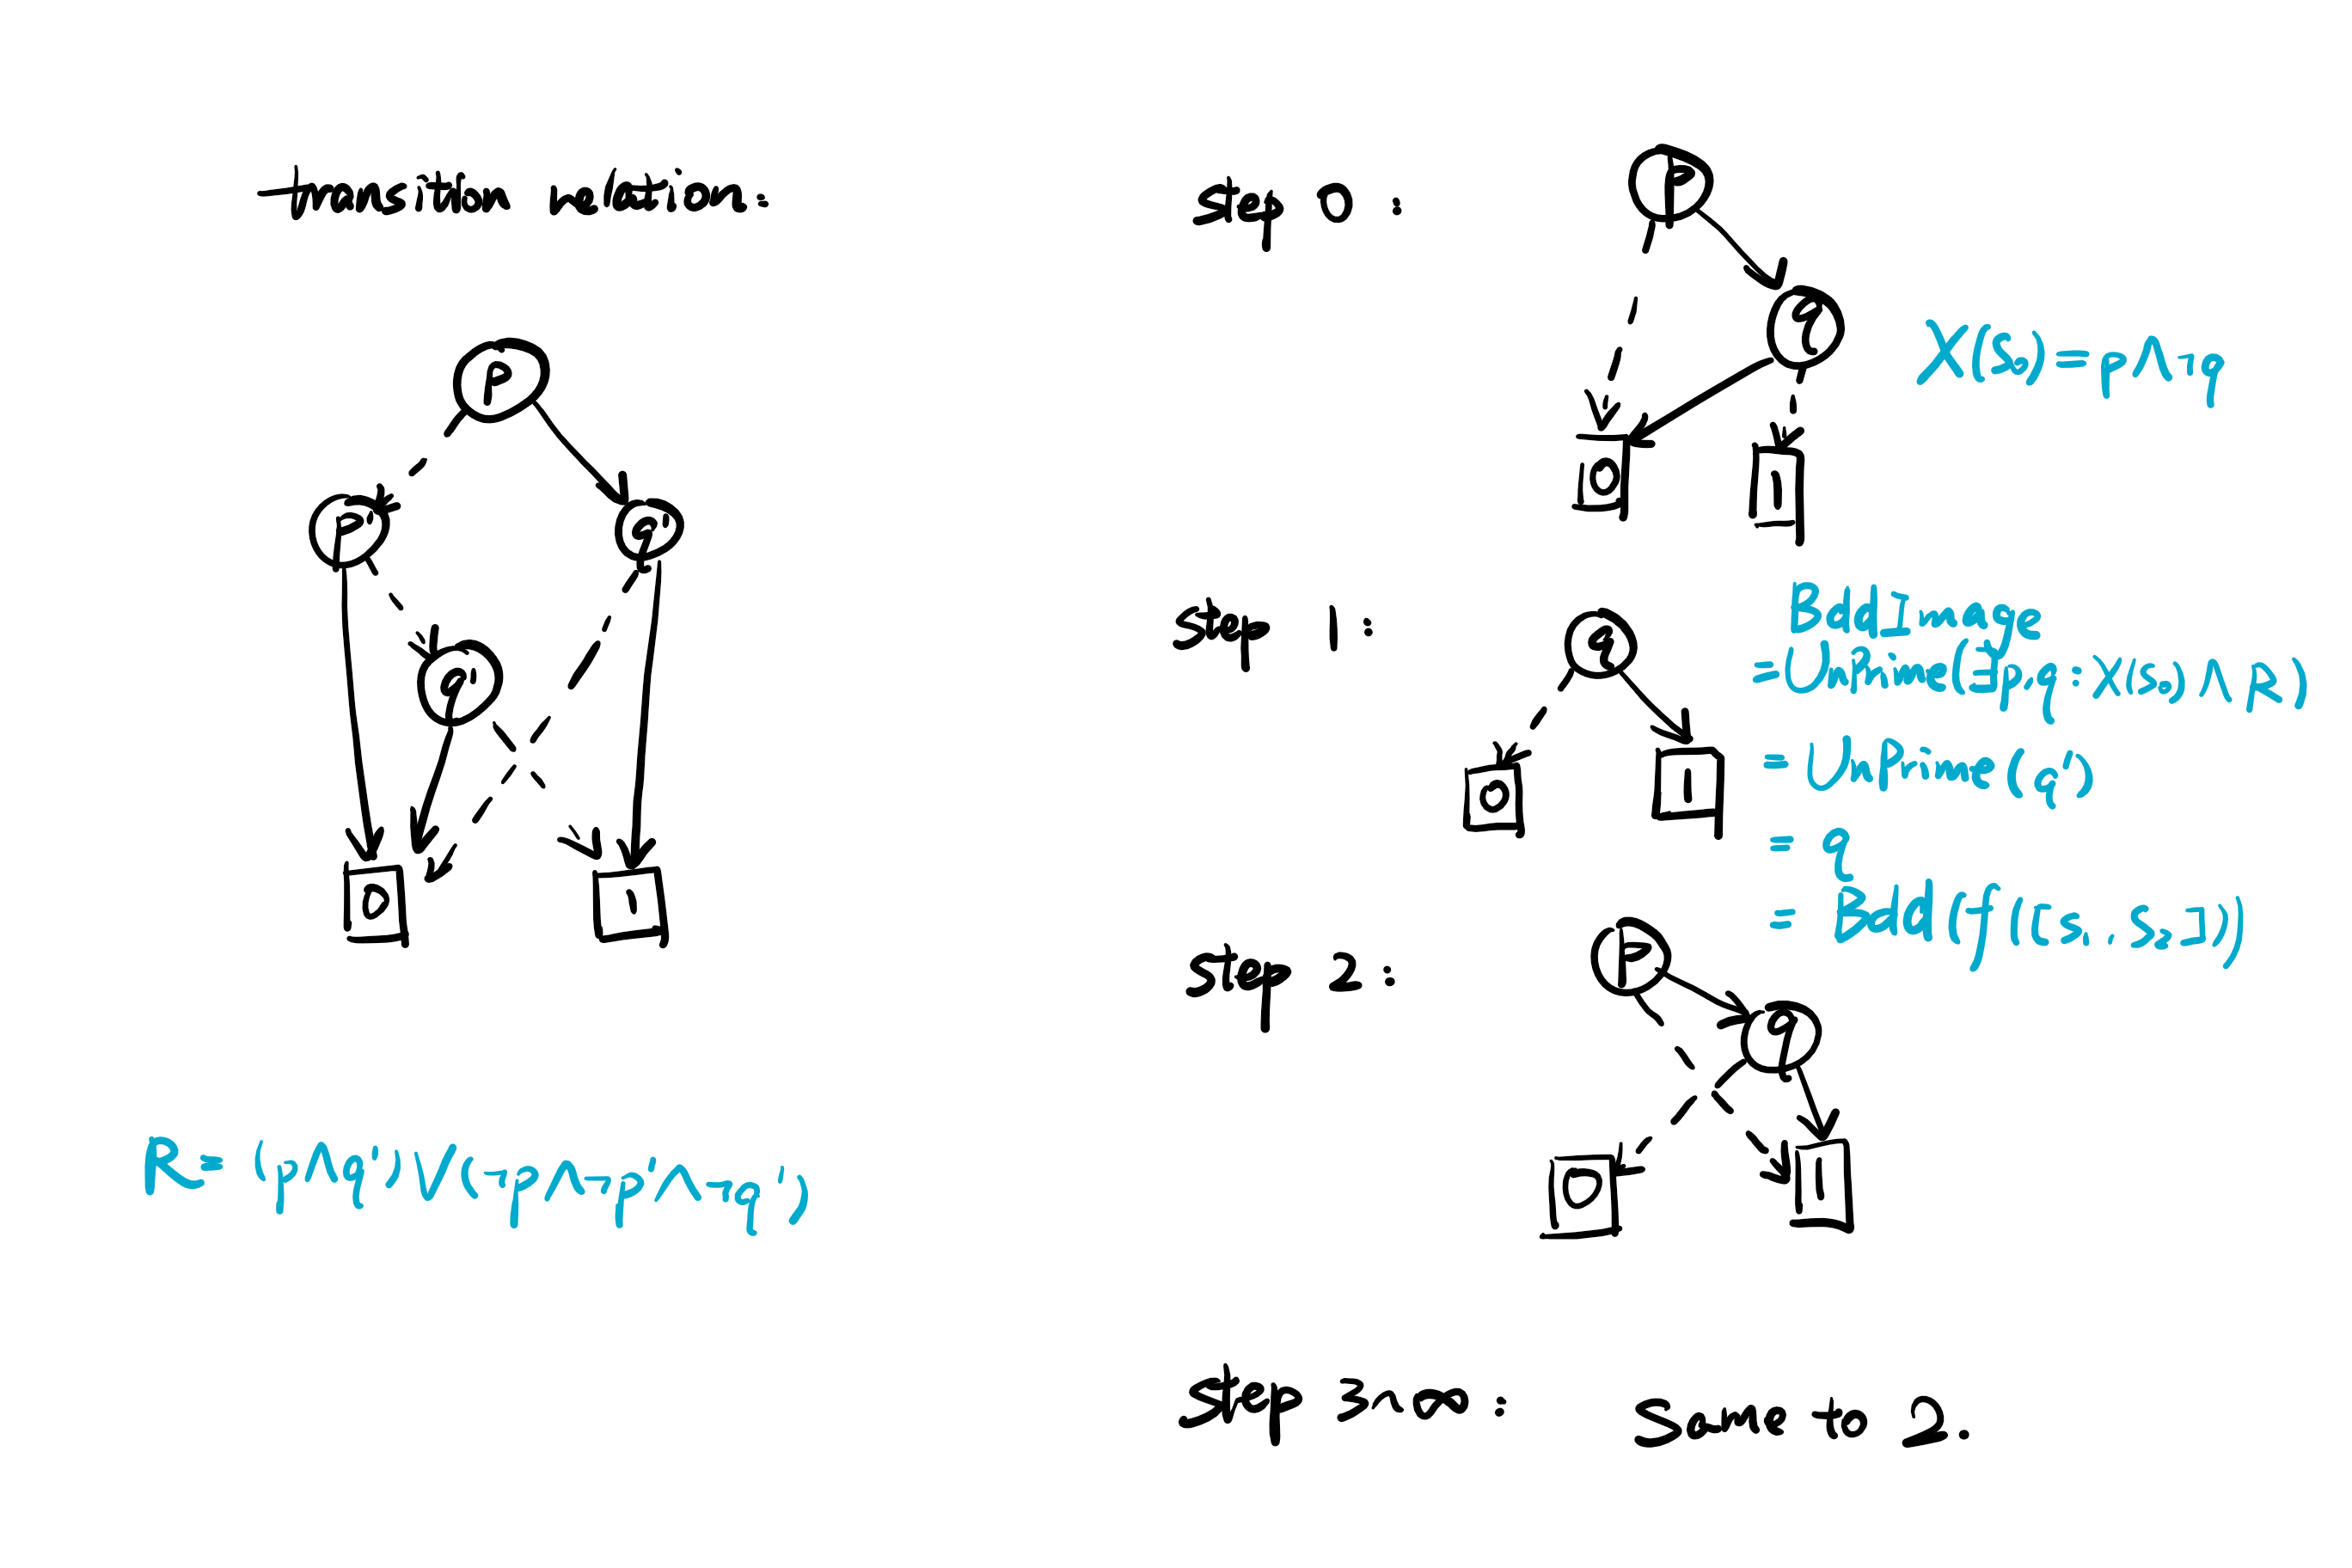 transition relation:
P
P'
q'
q'
0
1
R = (p∧q')∨(¬p∧¬p'∧¬q')
step 0:
P
q
X(s₀)=p∧¬q
0
1
step 1:
q
0
1
BddImage
= UnPrime(∃p,q:X(s₀)∧R)
= UnPrime(q')
= q
= Bdd(f([s₁,s₂]))
step 2:
P
q
0
1
step 3~∞: Same to 2.